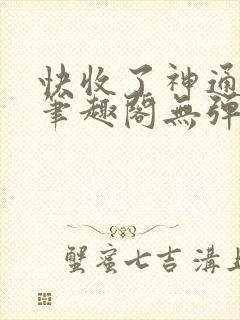 快收了神通
笔趣阁無弹
蟹蜜七吉 溝上